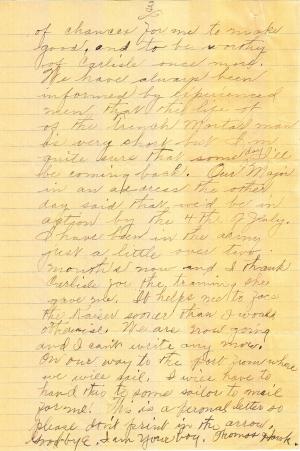 3
of chances for me to make
good, and to be worthy
of Carlisle once more.
We have always been
informed by experienced
men that the life of
of the Trench Mortar man
is very short but I'm
quite sure that some day I'll
be coming back. Our Major
in an address the other
day said that we'd be in
action by the 4th of July.
I have been in the army
just a little over two
months now and I thank
Carlisle for the training she
gave me. It helps me to face
the Kaiser sooner than I would
otherwise. We are now going
and I can't write any more.
On our way to the port from where
we will sail. I will have to
hand this to some sailor to mail
for me. This is a personal letter so
please don't print in the arrow.
Goodbye. I am your boy, Thomas Hawk.